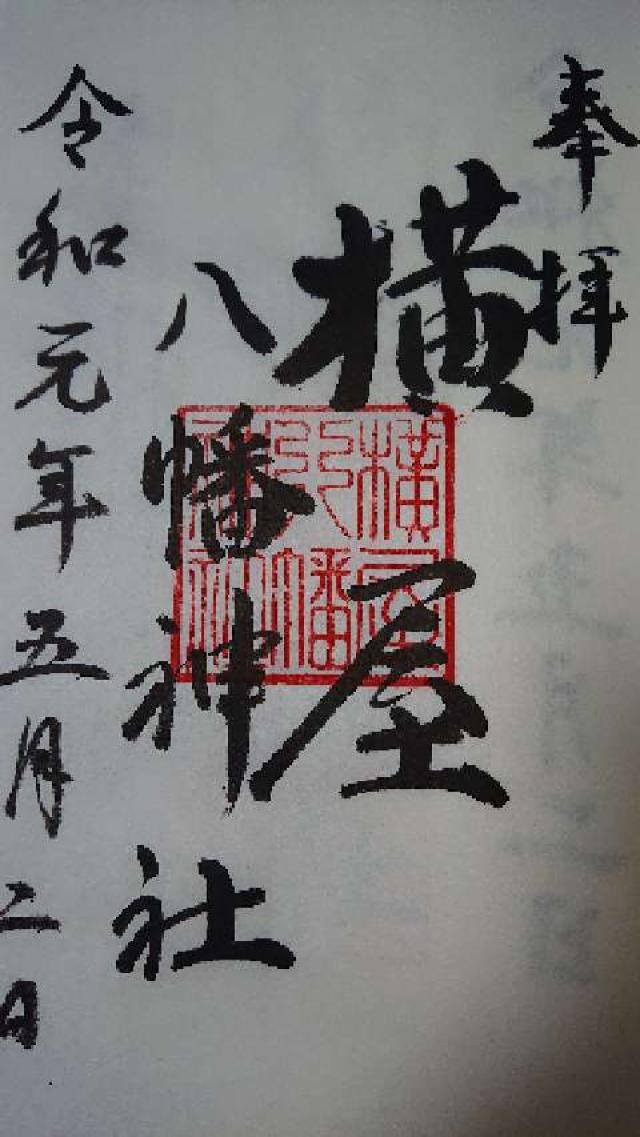 奉拝
横屋
八幡神社
令和元年五月二日
横屋
八幡
神社